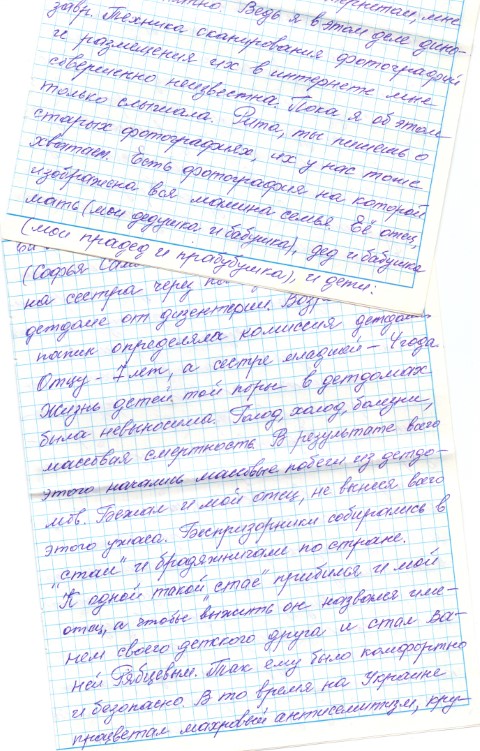 Ведь я в этом деле дино-
завр. Техника сканирования фотографий
и размещения их в интернете мне
совершенно неизвестна. Пока я об этом
только слышала. Рита, ты пишешь о
старых фотографиях, их у нас тоже
хватает. Есть фотография на которой
изображена вся мамина семья. Её отец,
мать (мои дедушка и бабушка), дед и бабушка
(мои прадед и прабубушка), и дети:
(Софья
на сестра через
детдоме от дизентерии.
папик определяла комиссия детдома
Отцу - 7 лет, а сестре младшей - 4 года
Жизнь детей той поры в детдомах
была невыносима. Голод, холод, болезни,
массовая смертность. В результате всего
этого начались массовые побеги из детдо-
мов. Бежал и мой отец, не вынеся всего
этого ужаса. Беспризорники собирались в
"стаи" и бродяжничали по стране.
К одной такой "стае" прибился и мой
отец, а чтобы выжить он назвался име-
нем своего детского друга и стал Ва-
ней Рябцевым. Так ему было комфортно
и безопасно. В то время на Украине
процветал махровый антисемитизм, кру-